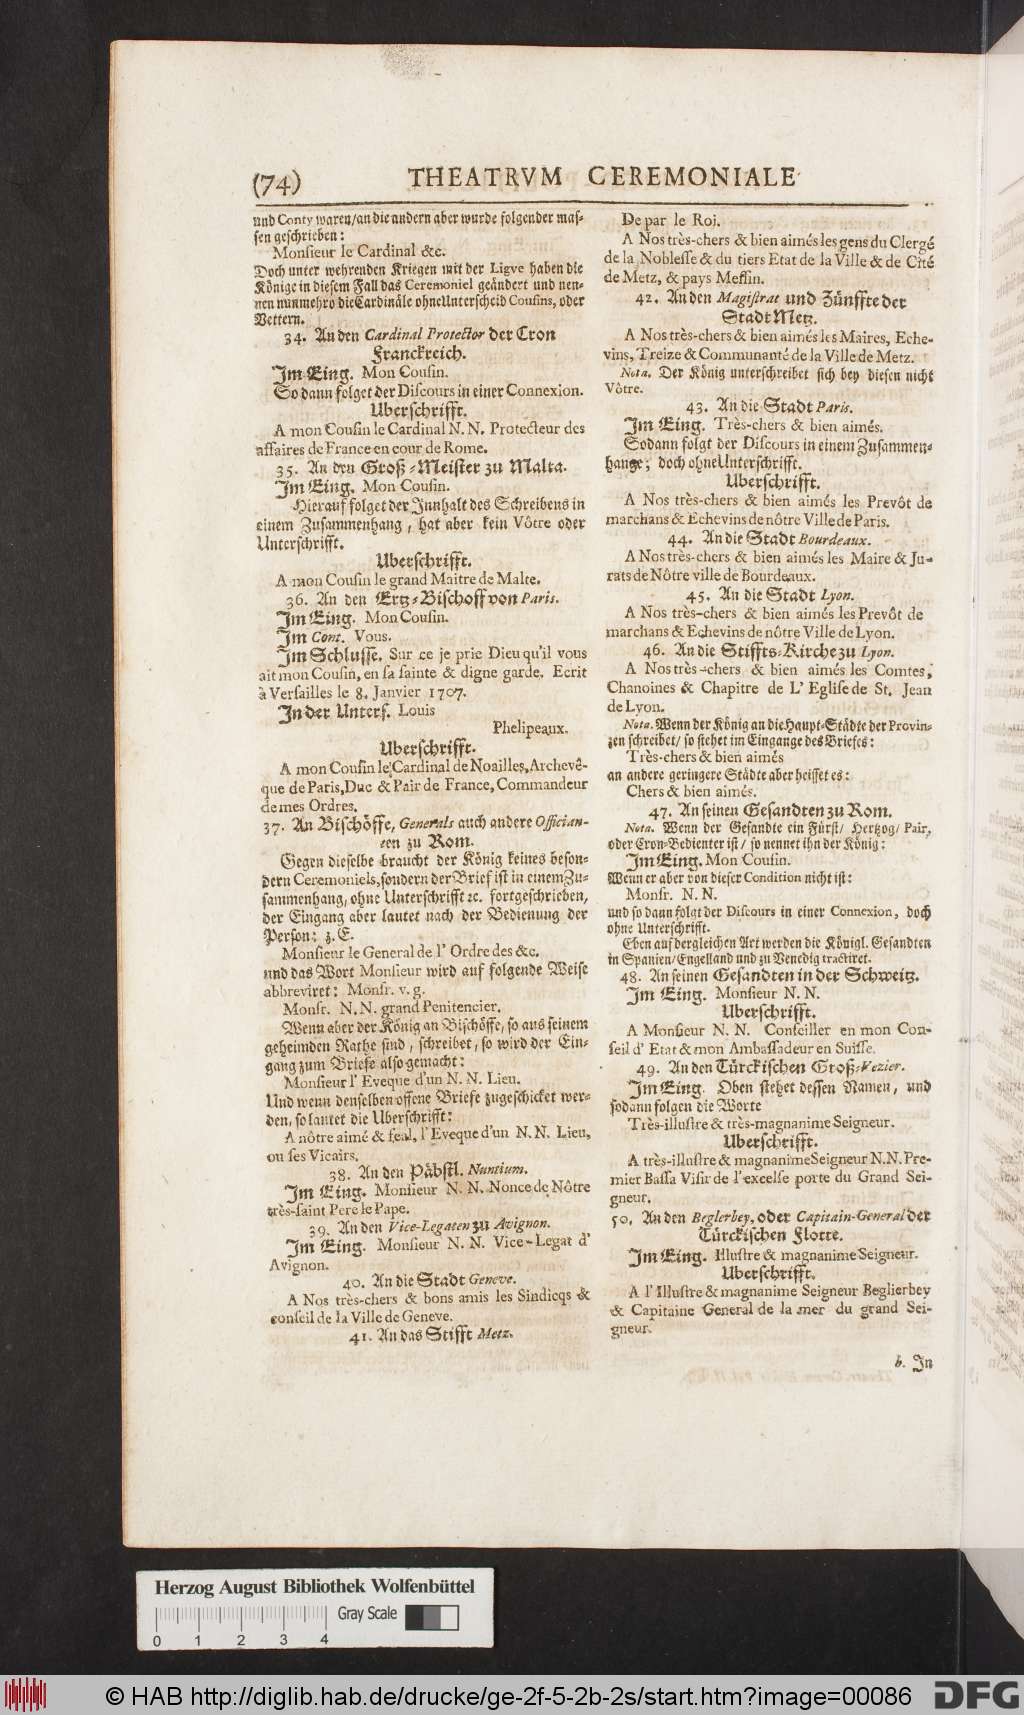 (74) THEATRVM CEREMONIALE
und Conty waren/an die andern aber wurde folgender mas-
sen geschrieben:
Monsieur le Cardinal &c.
Doch unter wehrenden Kriegen mit der Ligve haben die
Könige in diesem Fall das Ceremoniel geändert und nen-
nen nunmehro die Cardinäle ohne Unterscheid Cousins, oder
Vettern.
34. An den Cardinal Protector der Cron
Franckreich.
Im Eing. Mon Cousin.
So dann folget der Discours in einer Connexion.
Uberschrifft.
A mon Cousin le Cardinal N. N. Protecteur des
affaires de France en cour de Rome.
35. An den Groß-Meister zu Malta.
Im Eing. Mon Cousin.
Hierauf folget der Innhalt des Schreibens in
einem Zusammenhang, hat aber kein Vôtre oder
Unterschrifft.
Uberschrifft.
A mon Cousin le grand Maitre de Malte.
36. An den Ertz-Bischoff von Paris.
Im Eing. Mon Cousin.
Im Cont. Vous.
Im Schlusse. Sur ce je prie Dieu qu'il vous
ait mon Cousin, en sa sainte & digne garde. Ecrit
à Versailles le 8. Janvier 1707.
In der Unters. Louis
Phelipeaux.
Uberschrifft.
A mon Cousin le Cardinal de Noailles, Archevê-
que de Paris, Duc & Pair de France, Commandeur
de mes Ordres.
37. An Bischöffe, Generals auch andere Offician-
ten zu Rom.
Gegen dieselbe braucht der König keines beson-
dern Ceremoniels, sondern der Brief ist in einem Zu-
sammenhang, ohne Unterschrifft ꝛc. fortgeschrieben,
der Eingang aber lautet nach der Bedienung der
Person: z. E.
Monsieur le General de l' Ordre des &c.
und das Wort Monsieur wird auf folgende Weise
abbreviret: Monsr. v. g.
Monsr. N. N. grand Penitencier.
Wenn aber der König an Bischöffe, so aus seinem
geheimden Rathe sind, schreibet, so wird der Ein-
gang zum Briefe also gemacht:
Monsieur l' Eveque d'un N. N. Lieu.
Und wenn denselben offene Briefe zugeschicket wer-
den, so lautet die Uberschrifft:
A nôtre aimé & feal, l'Eveque d'un N. N. Lieu,
ou ses Vicairs.
38. An den Päbstl. Nuntium.
Im Eing. Monsieur N. N. Nonce de Nôtre
très-saint Pere le Pape.
39. An den Vice-Legaten zu Avignon.
Im Eing. Monsieur N. N. Vice-Legat d'
Avignon.
40. An die Stadt Geneve.
A Nos très-chers & bons amis les Sindicqs &
conseil de la Ville de Geneve.
41. An das Stifft Metz.
De par le Roi.
A Nos très-chers & bien aimés les gens du Clergé
de la Noblesse & du tiers Etat de la Ville & de Cité
de Metz, & pays Messin.
42. An den Magistrat und Zünffte der
Stadt Metz.
A Nos très-chers & bien aimés les Maires, Eche-
vins, Treize & Communanté de la Ville de Metz.
Nota. Der König unterschreibet sich bey diesen nicht
Vôtre.
43. An die Stadt Paris.
Im Eing. Très-chers & bien aimés.
Sodann folgt der Discours in einem Zusammen-
hange, doch ohne Unterschrifft.
Uberschrifft.
A Nos très-chers & bien aimés les Prevôt de
marchans & Echevins de nôtre Ville de Paris.
44. An die Stadt Bourdeaux.
A Nos très-chers & bien aimés les Maire & Ju-
rats de Nôtre ville de Bourdeaux.
45. An die Stadt Lyon.
A Nos très-chers & bien aimés les Prevôt de
marchans & Echevins de nôtre Ville de Lyon.
46. An die Stiffts-Kirche zu Lyon.
A Nos très-chers & bien aimés les Comtes,
Chanoines & Chapitre de L' Eglise de St. Jean
de Lyon.
Nota. Wenn der König an die Haupt-Städte der Provin-
zen schreibet/ so stehet im Eingange des Briefes:
Très-chers & bien aimés
an andere geringere Städte aber heisset es:
Chers & bien aimés.
47. An seinen Gesandten zu Rom.
Nota. Wenn der Gesandte ein Fürst/ Hertzog/ Pair,
oder Cron-Bedienter ist/ so nennet ihn der König:
Im Eing. Mon Cousin.
Wenn er aber von dieser Condition nicht ist:
Monsr. N. N.
und so dann folgt der Discours in einer Connexion, doch
ohne Unterschrifft.
Eben auf dergleichen Art werden die Königl. Gesandten
in Spanien/Engelland und zu Venedig tractiret.
48. An seinen Gesandten in der Schweitz.
Im Eing. Monsieur N. N.
Uberschrifft.
A Monsieur N. N. Conseiller en mon Con-
seil d' Etat & mon Ambassadeur en Suisse.
49. An den Türckischen Groß-Vezier.
Im Eing. Oben stehet dessen Namen, und
sodann folgen die Worte
Très-illustre & très-magnanime Seigneur.
Uberschrifft.
A très-illustre & magnanime Seigneur N. N. Pre-
mier Bassa Visir de l'excelse porte du Grand Sei-
gneur.
50. An den Beglerbey, oder Capitain-General der
Türckischen Flotte.
Im Eing. Illustre & magnanime Seigneur.
Uberschrifft.
A l'Illustre & magnanime Seigneur Beglierbey
& Capitaine General de la mer du grand Sei-
gneur.
b. In
Herzog August Bibliothek Wolfenbüttel
Gray Scale
0 1 2 3 4
© HAB http://diglib.hab.de/drucke/ge-2f-5-2b-2s/start.htm?image=00086 DFG